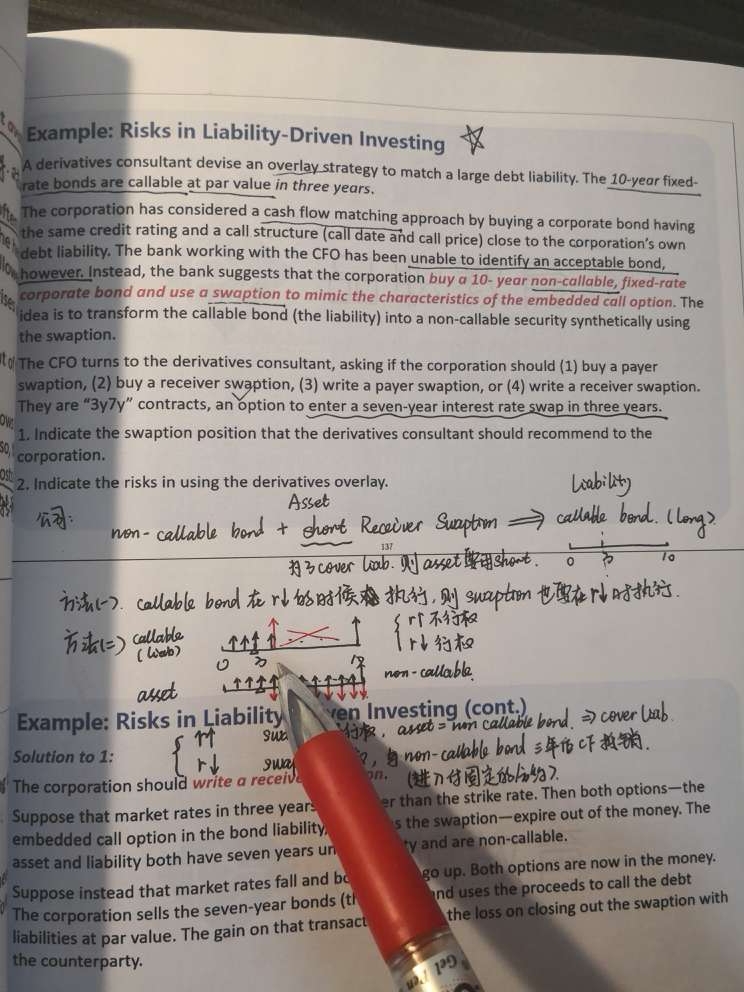 Example: Risks in Liability-Driven Investing
A derivatives consultant devise an overlay strategy to match a large debt liability. The 10-year fixed-
rate bonds are callable at par value in three years.
The corporation has considered a cash flow matching approach by buying a corporate bond having
the same credit rating and a call structure (call date and call price) close to the corporation's own
debt liability. The bank working with the CFO has been unable to identify an acceptable bond,
however. Instead, the bank suggests that the corporation buy a 10- year non-callable, fixed-rate
corporate bond and use a swaption to mimic the characteristics of the embedded call option. The
idea is to transform the callable bond (the liability) into a non-callable security synthetically using
the swaption.
The CFO turns to the derivatives consultant, asking if the corporation should (1) buy a payer
swaption, (2) buy a receiver swaption, (3) write a payer swaption, or (4) write a receiver swaption.
They are “3y7y” contracts, an option to enter a seven-year interest rate swap in three years.
1. Indicate the swaption position that the derivatives consultant should recommend to the
corporation.
2. Indicate the risks in using the derivatives overlay.
Asset Liability
公司:
non-callable bond + short Receiver Swaption ⇒ callable bond. (long)
137
为了cover liab. 则asset要用short. 0 3 10
方法(一). callable bond 在r↓的时候 执行, 则 swaption 也要在r↓时执行.
方法(二) callable (liab) { r↑ 不行权
r↓ 行权
0 3
asset non-callable
Example: Risks in Liability en Investing (cont.)
行权, asset = non callable bond. ⇒ cover liab.
Solution to 1: { r↑
r↓ 与non-callable bond 三年后CF抵销.
The corporation should write a receiv on. (进入付固定的合约).
Suppose that market rates in three years er than the strike rate. Then both options—the
embedded call option in the bond liability s the swaption—expire out of the money. The
asset and liability both have seven years un ty and are non-callable.
Suppose instead that market rates fall and bo go up. Both options are now in the money.
The corporation sells the seven-year bonds (th nd uses the proceeds to call the debt
liabilities at par value. The gain on that transact the loss on closing out the swaption with
the counterparty.